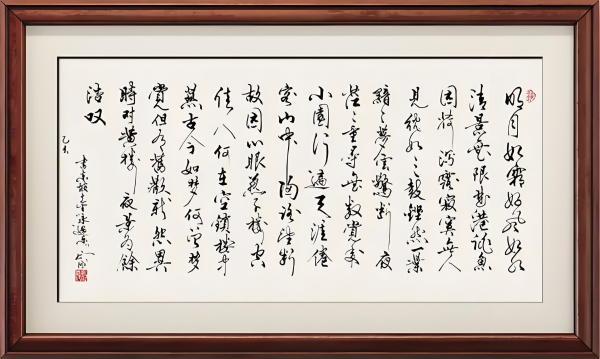 明月如霜好风如水
清景無限曲港跳魚
圆荷泻露寂寞無人
見紞如三鼓鏗然一葉
黯黯夢雲驚断夜
茫茫重尋無处覺來
小園行遍天涯倦
客山中歸路望断
故園心眼燕子樓空
佳人何在空鎖樓中
燕古今如夢何曾夢
覺但有舊歡新怨異
時对黄樓夜景為餘
浩叹
乙未
書東坡永遇樂